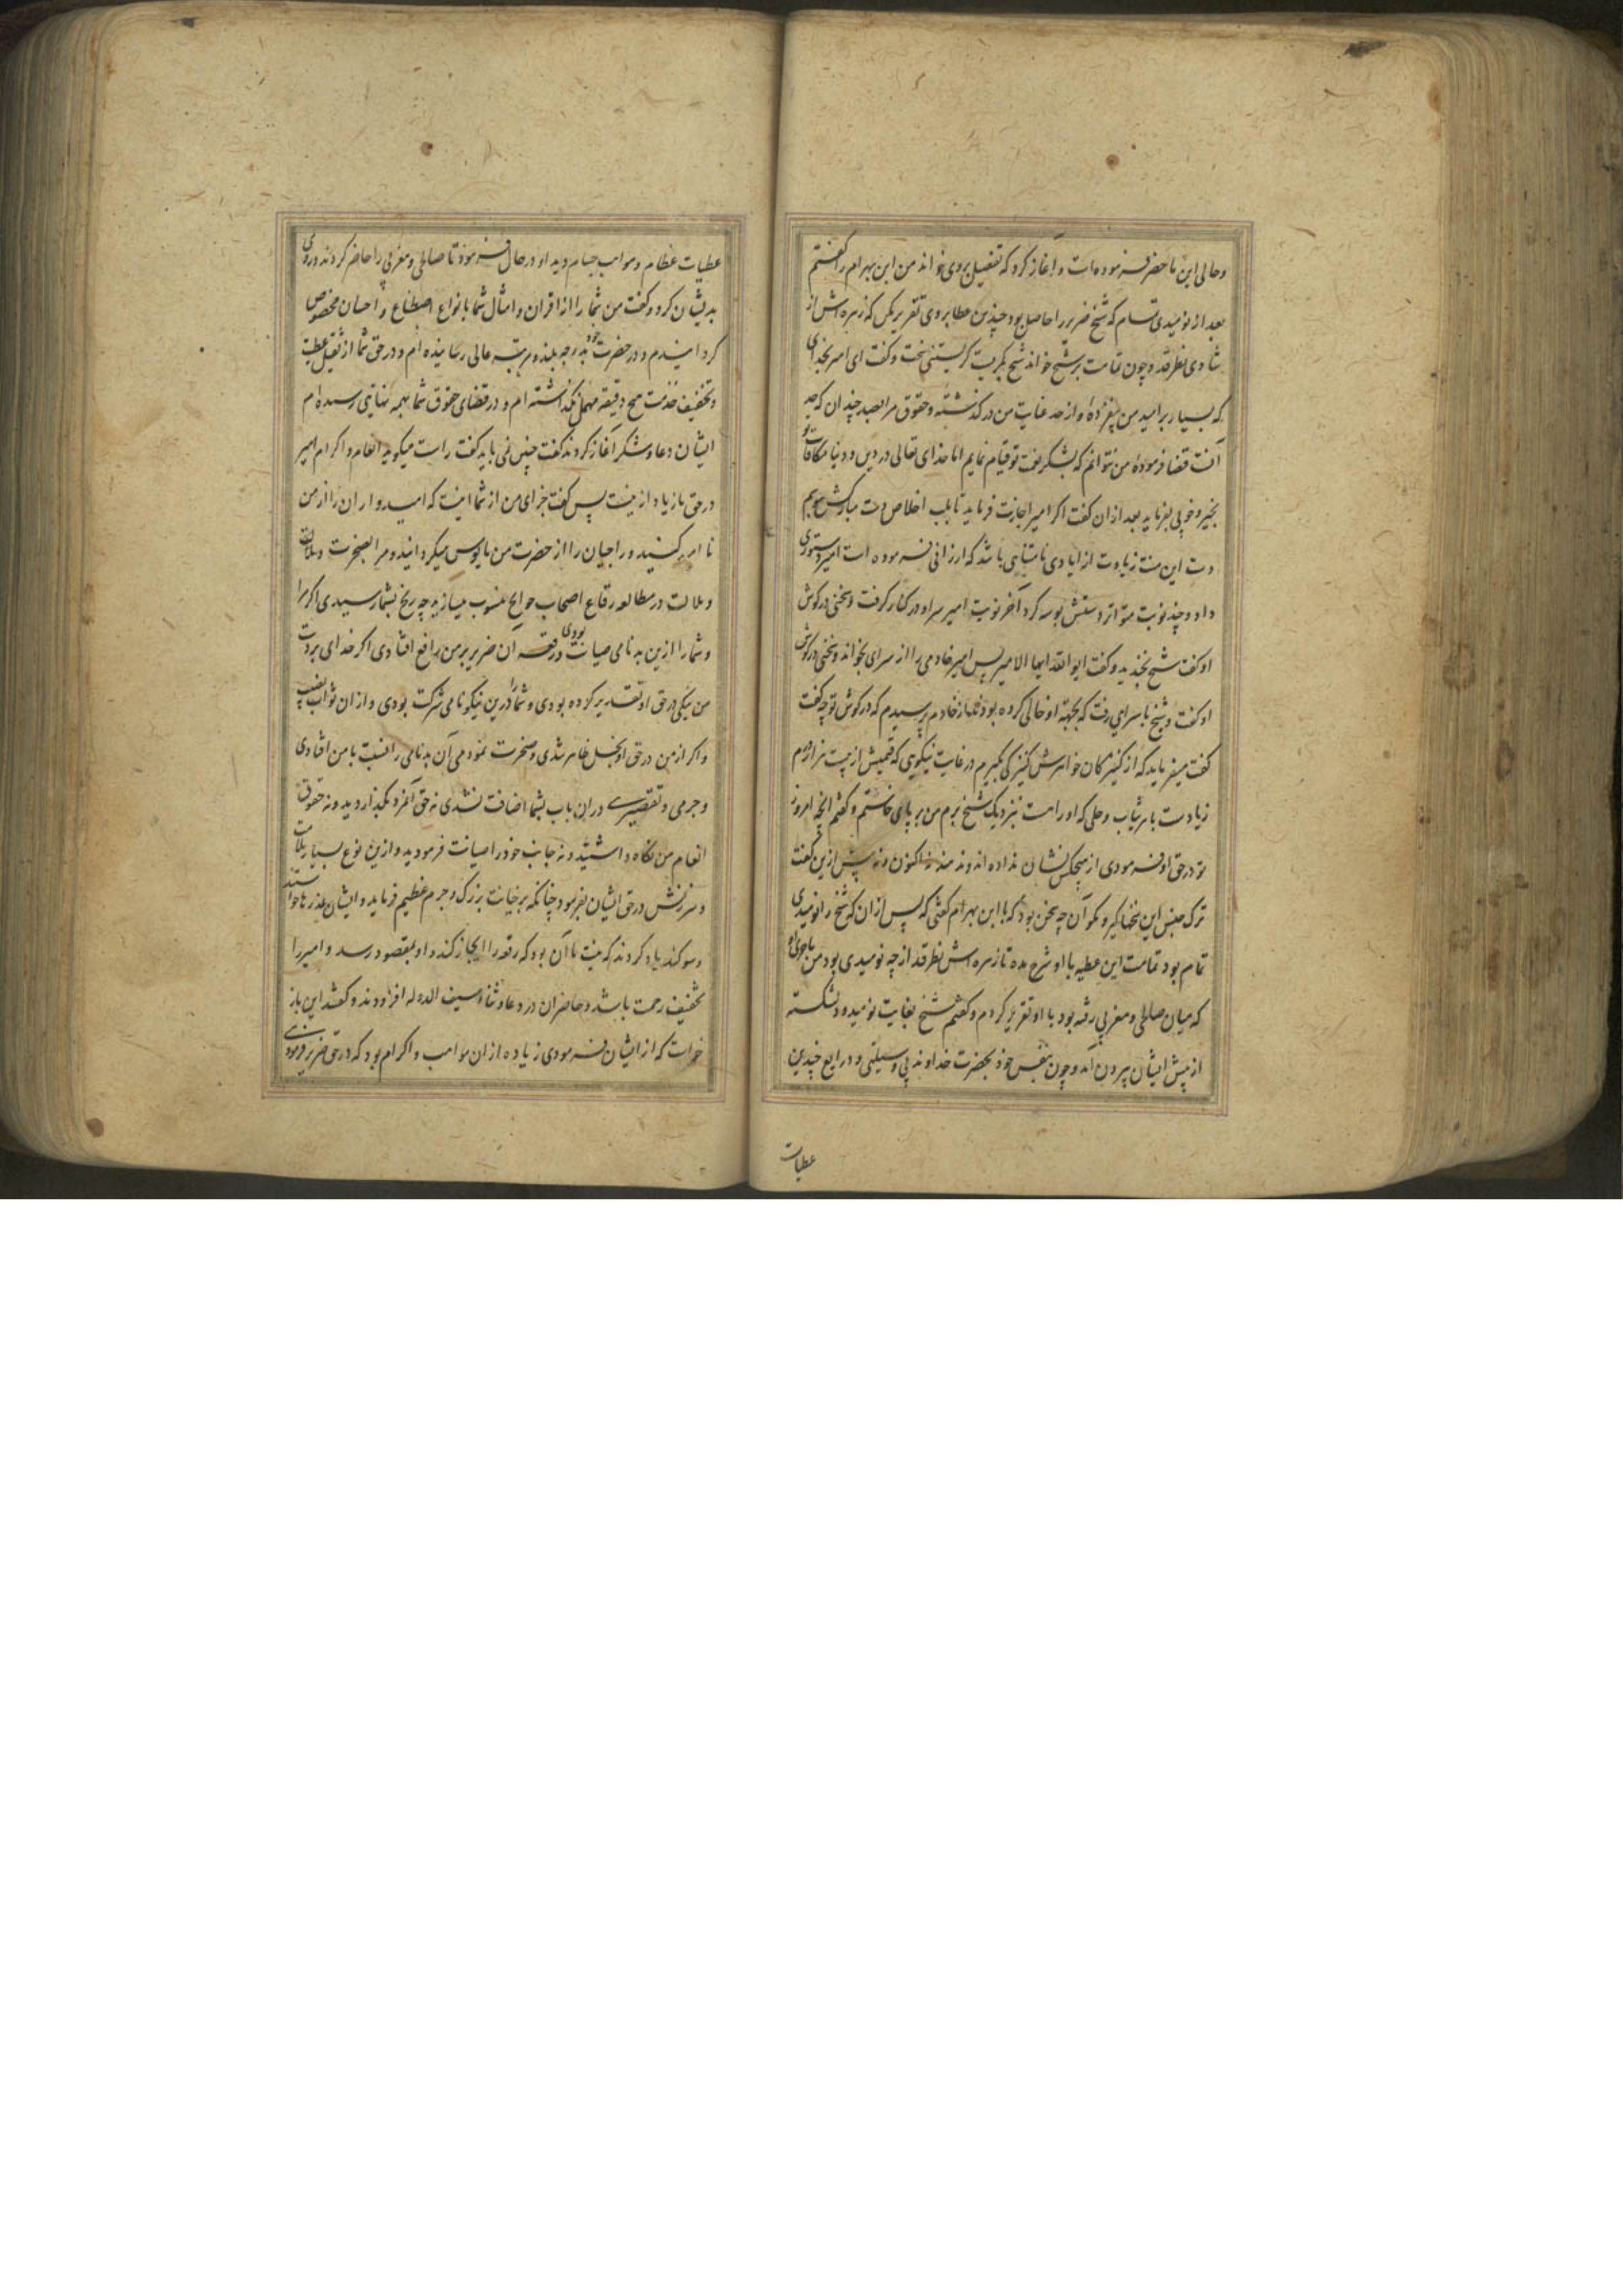 وحالی این ما حضر فرموده است و آغاز کرد که تفصیل بروی خواند من ابن بهرام را گفتم
بعد از نومیدی تمام که شیخ ضریر را حاصل بود چندین عطا بروی تقریر مکن که زهره اش از
شادی بطرقد و چون تمامت بر شیخ خواند شیخ بگریست گریستنی سخت و گفت ای امیر بخدای
که بسیار بر امید من بیفزوده و از حد غایت من درگذشته و حقوق مرا بصد چندان که حد
آنست قضا فرموده من نتوانم که بشکر نعمت تو قیام نمایم اما خدای تعالی در دین و دنیا مکافات تو
بخیر و خوبی بفرماید بعد از آن گفت اگر امیر اجازت فرماید تا بلب اخلاص دست مبارکش ببوسم
دست این منت زیادت از ایادی نامتناهی باشد که ارزانی فرموده است امیر دستوری
داد و چند نوبت متواتر دستش بوسه کرد آخر نوبت امیر سر او در کنار گرفت و سخنی در گوش
او گفت شیخ بخندید و گفت ای والله ایها الامیر پس امیر خادمی را از سرای بخواند و سخنی در گوش
او گفت و شیخ با سرایی رفت که بجهة او خالی کرده بودند از خادم پرسیدم که در گوش تو چه گفت
گفت میفرماید که از کنیزکان خواهرش کنیزکی بگیرم در غایت نیکویی که قیمتش از بیست هزار درم
زیادست با هر ثیاب و حلی که او راست بنزدیک شیخ برم من بر پای خاستم و گفتم انچه امروز
تو در حق او فرمودی از هیچکس نشان نداده اند و ندهند نه اکنون و نه پیش ازین گفت
ترک جنس این سخنها گیر و بگو آن چه سخن بود که با ابن بهرام گفتی که پس از آن که شیخ را نومیدی
تمام بود تمامت این عطیه با او شرح مده تا زهره اش بطرقد از چه نومیدی بود من ماجرای او
که میان صالحی و مغربی رفته بود با او تقریر کردم و گفتم شیخ بغایت نومید و دلشکسته
از پیش ایشان بیرون آمد و چون بنفس خود بحضرت خداوند بی وسیلتی و ذرایع چندین
عطیات
عطیات عظام و مواهب جسام دید او در حال فرمود تا صالحی و مغربی را حاضر کردند و روی
بدیشان کرد و گفت من شما را از اقران و امثال شما بانواع اصطناع و احسان مخصوص
گردانیدم و در حضرت خود بدرجه بلند و مرتبه عالی رسانیده ام و در حق شما از تعیل عطیت
و تخفیف خدمت هیچ دقیقه مهمل نگذاشته ام و در قضای حقوق شما بهمه نهایتی رسیده ام
ایشان دعا و شکر آغاز کردند گفت چنین نمی باید گفت راست میگویید انعام و اکرام امیر
در حق ما زیاد ازینست پس گفت جزای من از شما اینست که امیدواران را از من
نا امید کنید و راجیان را از حضرت من مایوس میگردانید و مرا بضجرت و ملالت
و ملالت در مطالعه رقاع اصحاب حوایج منسوب میسازید چه رنج بشما رسیدی اگر مرا
و شما را ازین بدنامی صیانت بودی و رقعه آن ضریر بر من رافع افتادی اگر خدای بر دست
من نیکی در حق او تقدیر کرده بودی و شما را درین نیکو نامی شرکت بودی و از آن ثواب نصیب
و اگر از من در حق او بخل ظاهر شدی و ضجرت نمودمی آن بدنامی را نسبت با من افتادی
و جرمی و تقصیری در آن باب بشما اضافت نشدی نه حق آنمرد بگذاردید و نه حقوق
انعام من نگاه داشتید و نه جانب خود را صیانت فرمودید و ازین نوع بسیار ملامت
و سرزنش در حق ایشان بفرمود چنانکه بر خیانت بزرگ و جرم عظیم فرماید و ایشان عذرها خواستند
و سوگند یاد کردند که نیت ما آن بود که رقعه را ایجاز کند و او بمقصود رسد و امیر را
تخفیف زحمت باشد و حاضران در دعا و ثناء سیف الدوله افزودند و گفتند این باز
خواست که از ایشان فرمودی زیاده از آن مواهب و اکرام بود که در حق ضریر فرمودی